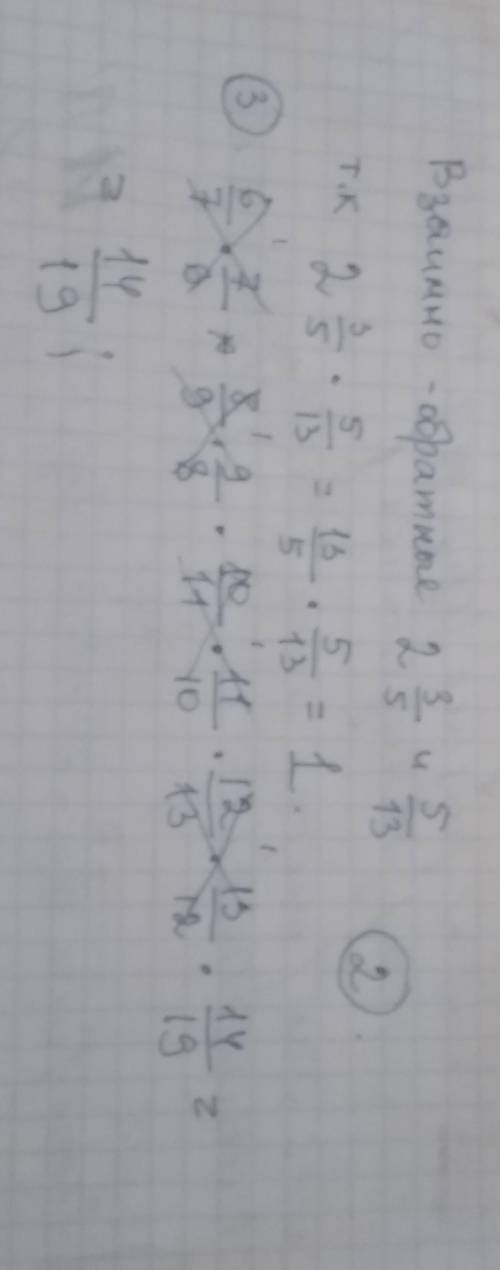 Взаимно - обратные 2 3/5 и 5/13
т.к 2 3/5 · 5/13 = 13/5 · 5/13 = 1. ②.
③ 6/7 · 7/6 · 8/9 · 9/8 · 10/11 · 11/10 · 12/13 · 13/12 · 14/19 =
= 14/19 ;